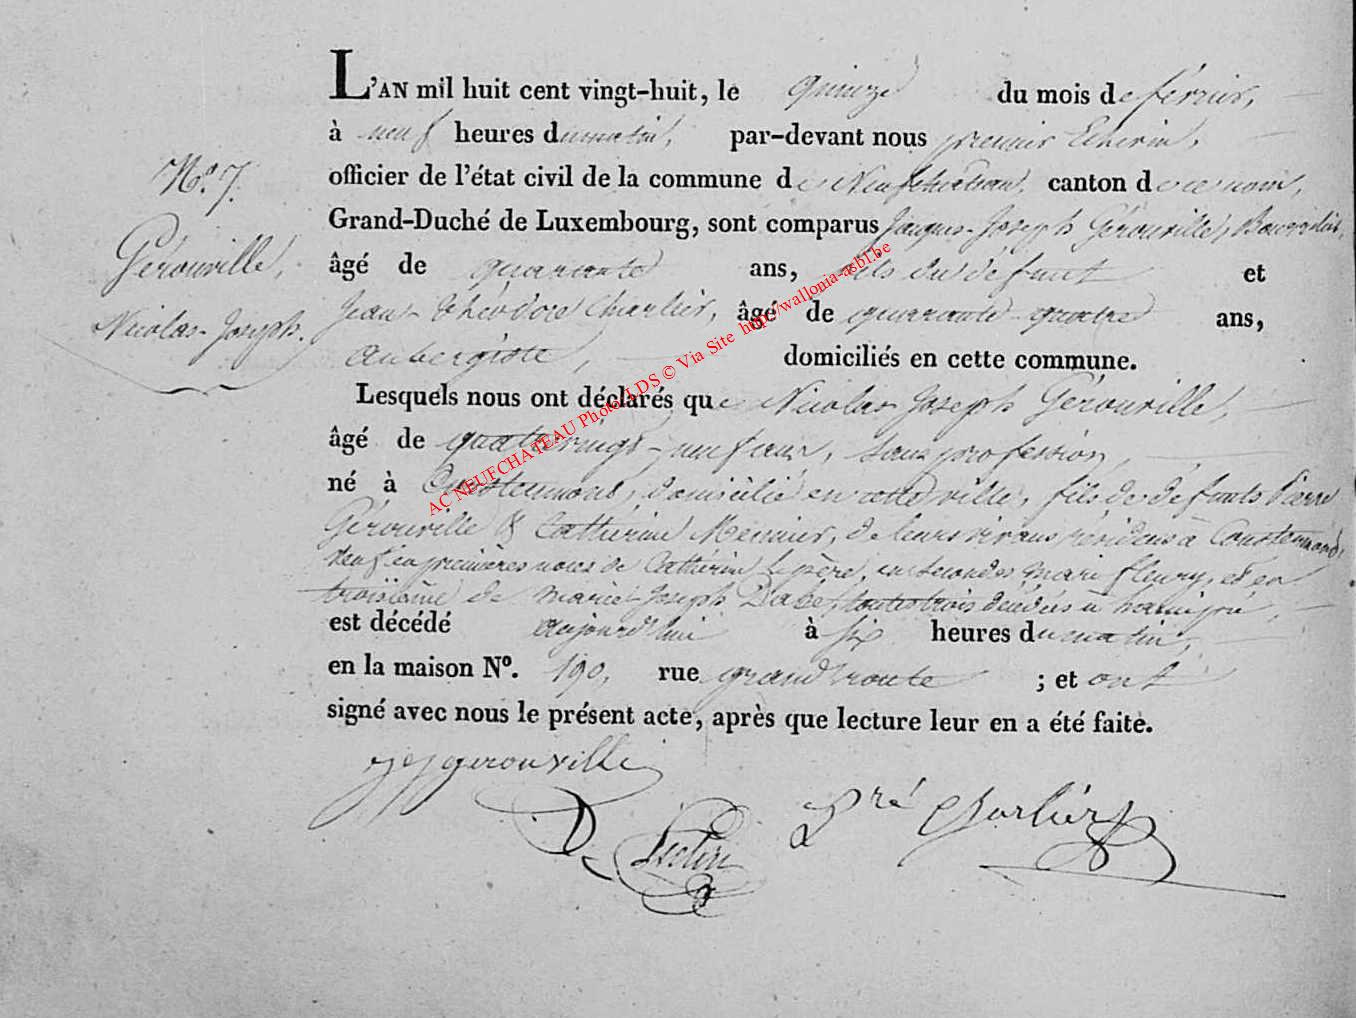 L'AN mil huit cent vingt-huit, le quinze du mois de février,
à neuf heures du matin, par-devant nous premier Echevin,
officier de l'état civil de la commune de Neufchateau, canton de ce nom,
Grand-Duché de Luxembourg, sont comparus Jacques-Joseph Gérouville,
âgé de quarante ans, fils du défunt et
Jean-Théodore Charlier, âgé de quarante quatre ans,
aubergiste, domiciliés en cette commune.
N.° 7.
Gérouville,
Nicolas-Joseph.
Lesquels nous ont déclarés que Nicolas Joseph Gérouville,
âgé de quatrevingt-neuf ans, sans profession,
né à domicilié en cette ville, fils de defunts Pierre
Gérouville & Catherine Meunier, de leurs vivans résidens à
veuf en premières noces de Catherine Lepère, en secondes Marie fleury, et en
troisième de Marie-Joseph toutes trois décédées à hamipré,
est décédé aujourd'hui à six heures du matin,
en la maison N°. 190, rue grand route ; et ont
signé avec nous le présent acte, après que lecture leur en a été faite.
jjgerouville
Dré Charlier
AC NEUFCHATEAU Photo. LDS © Via Site http://wallonia-asbl.be